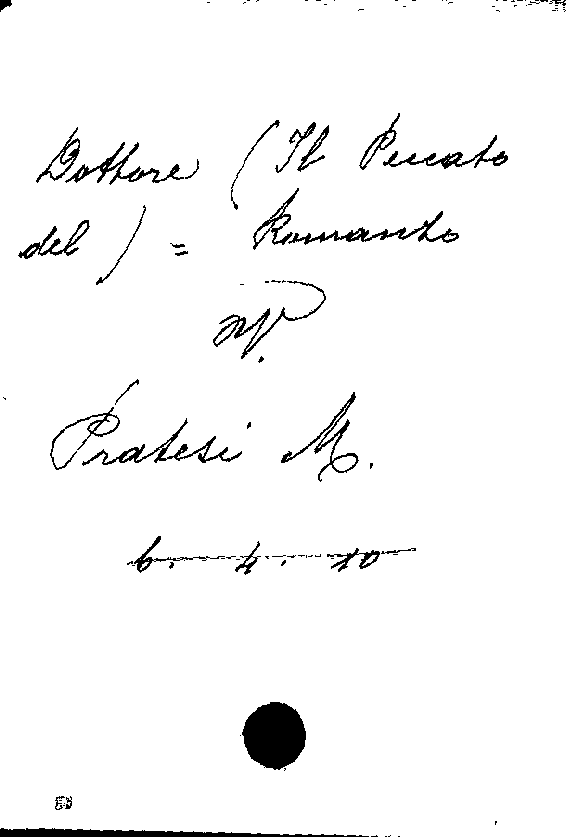 Dottore (Il Peccato
del) = Romanzo
Pratesi M.
6. 4. 10